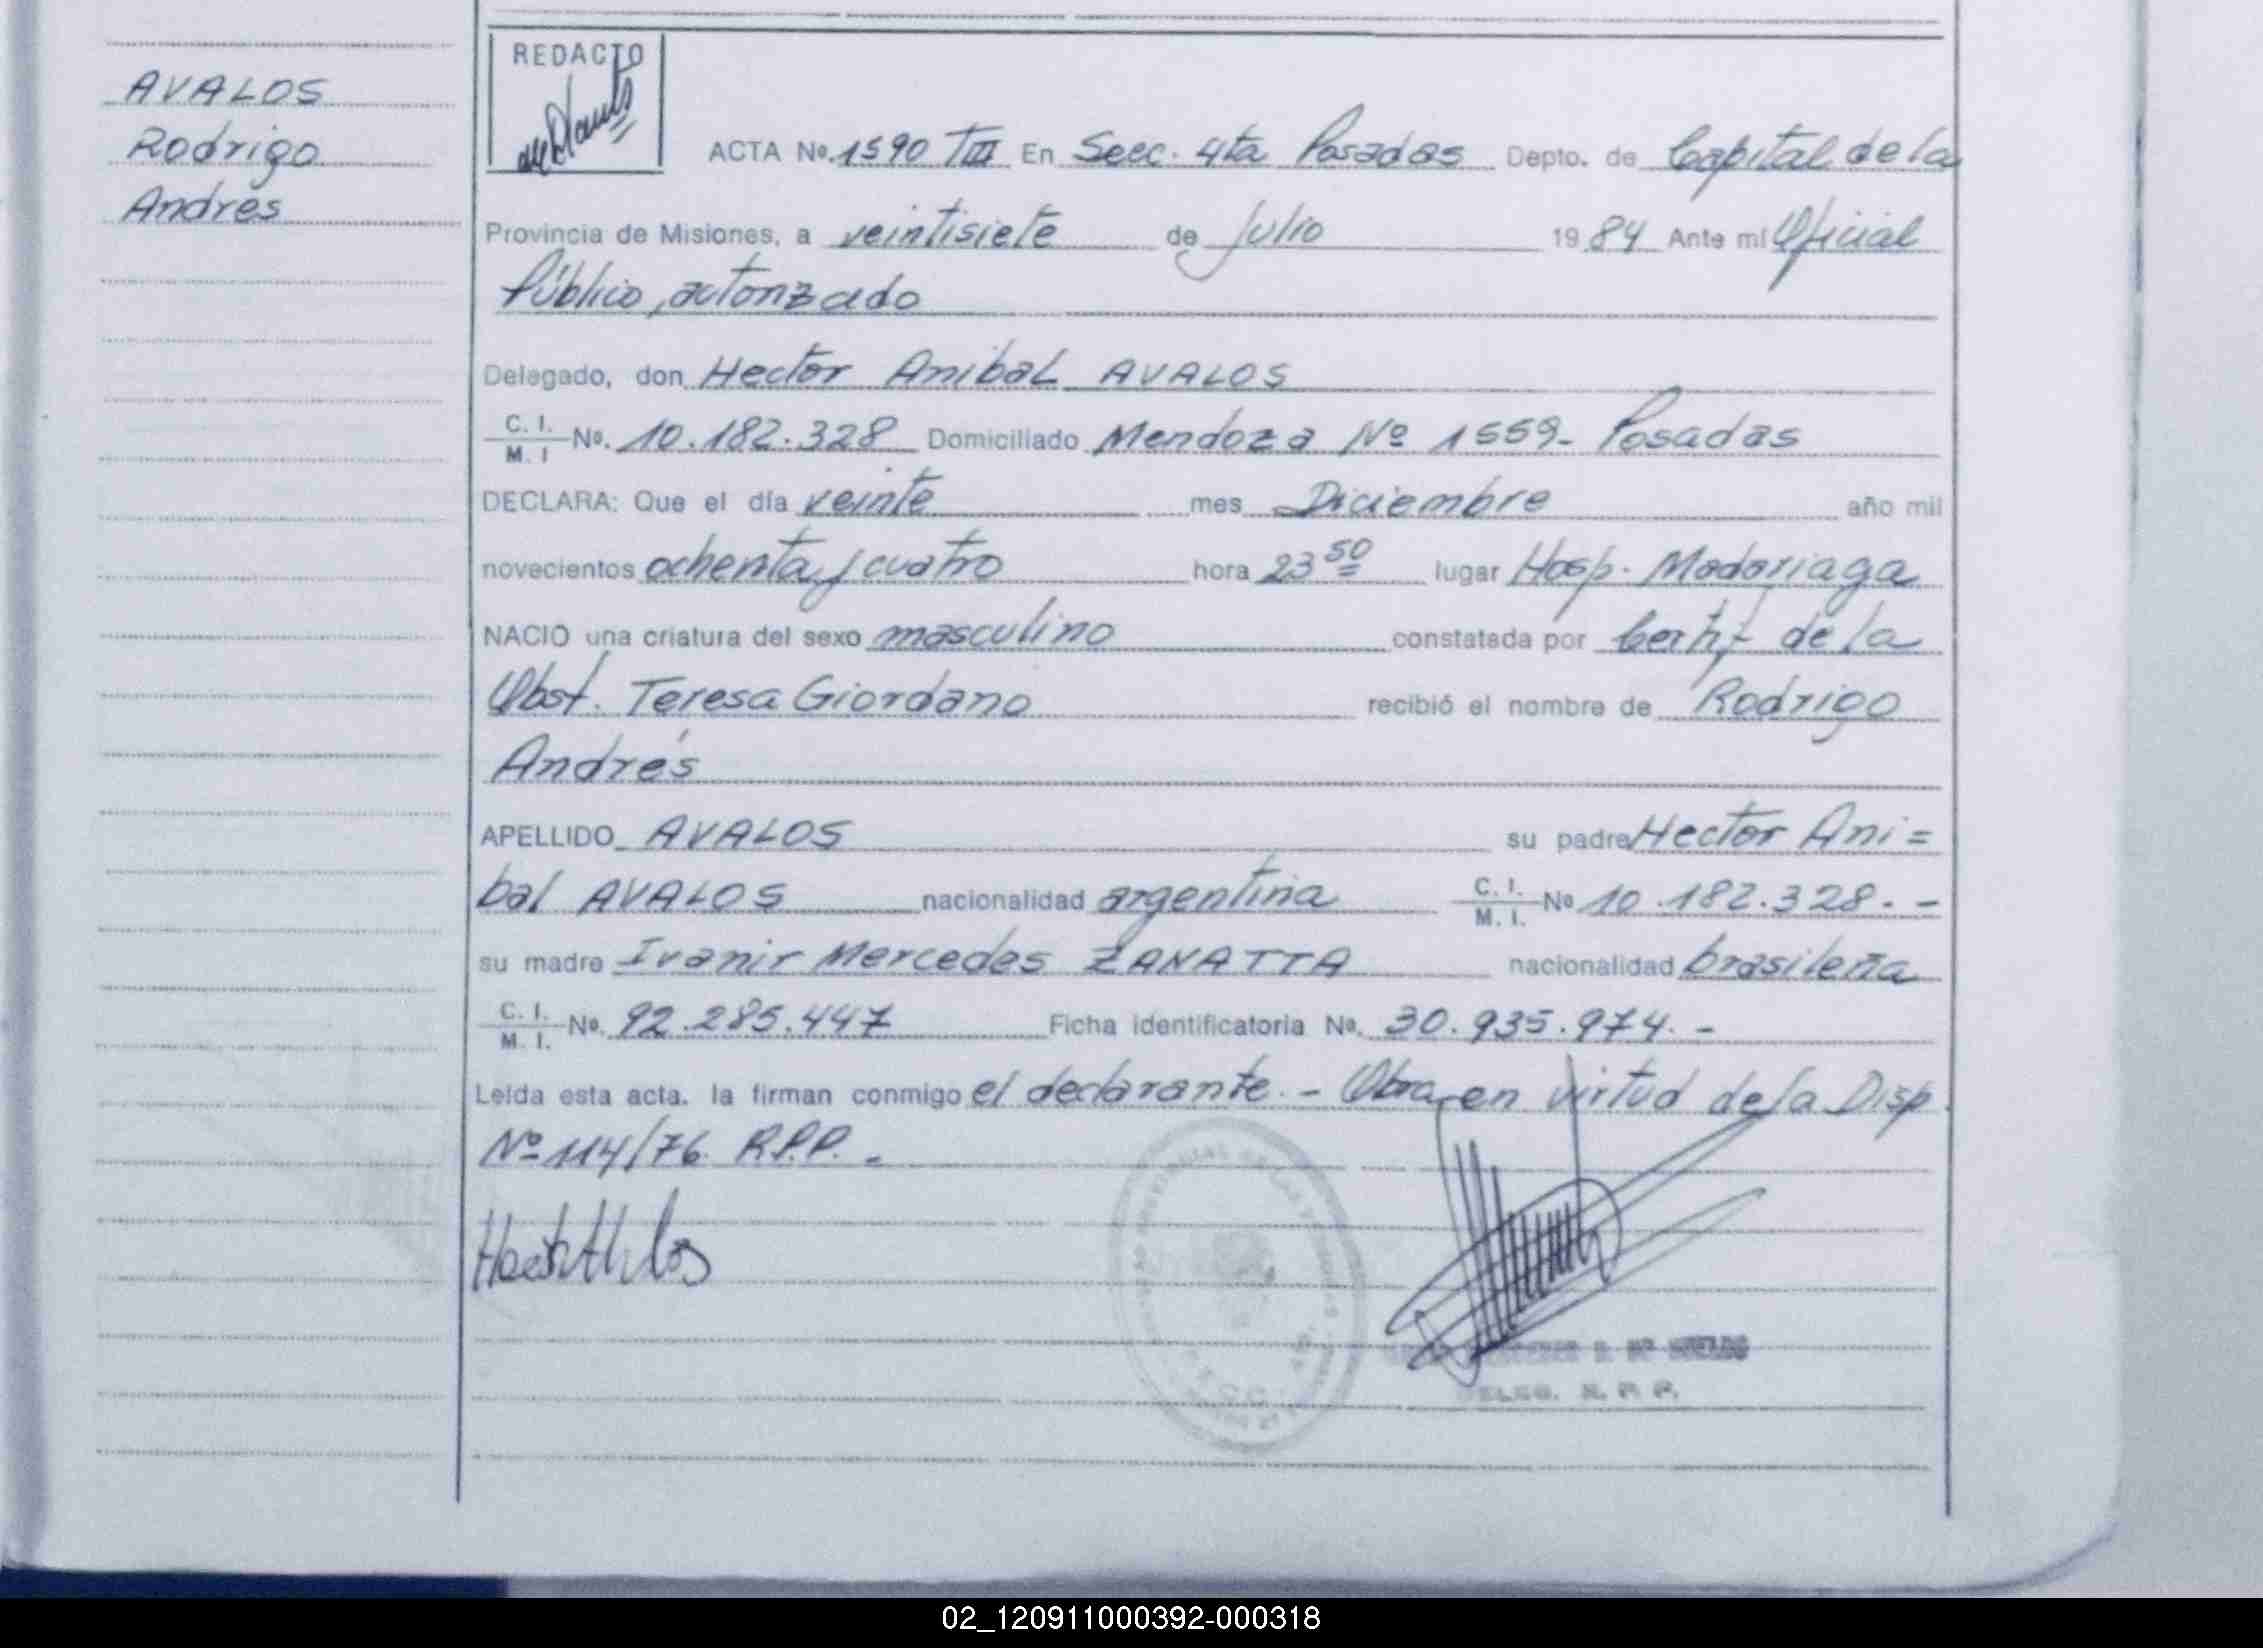 AVALOS
Rodrigo
Andrés
REDACTO
ACTA No. 1590 TIII En Secc. 4ta Posadas Depto. de Capital de la
Provincia de Misiones, a veintisiete de Julio 1984 Ante mi Oficial
Público, autorizado
Delegado, don Hector Anibal AVALOS
C. I. / M. I No. 10.182.328 Domiciliado Mendoza Nº 1559- Posadas
DECLARA: Que el día veinte mes Diciembre año mil
novecientos ochenta y cuatro hora 23 50 lugar Hosp. Madariaga
NACIO una criatura del sexo masculino constatada por Certif de la
Obst. Teresa Giordano recibió el nombre de Rodrigo
Andrés
APELLIDO AVALOS su padre Hector Ani=
bal AVALOS nacionalidad argentina C. I. / M. I. No 10.182.328.-
su madre Ivanir Mercedes ZANATTA nacionalidad brasileña
C. I. / M. I. No. 92.285.447 Ficha identificatoria No. 30.935.974.-
Leída esta acta. la firman conmigo el declarante.- Obra en virtud de la Disp.
Nº 114/76. R.P.P.-
DELEG. R. P. P.
02_120911000392-000318